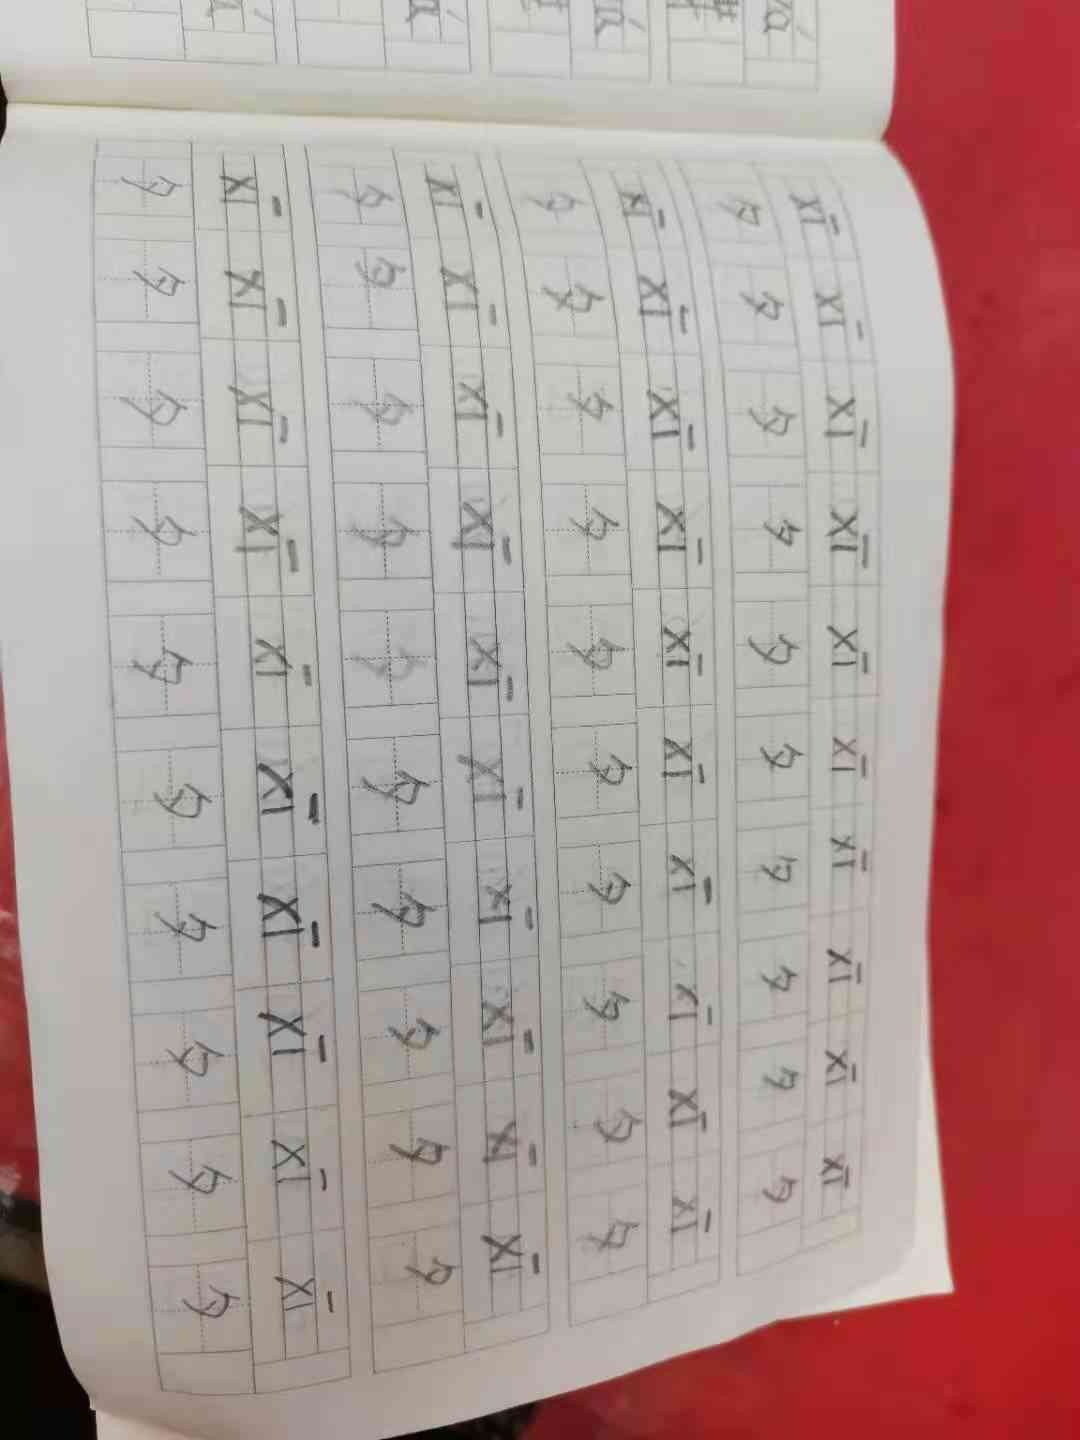 xī xī xī xī xī xī xī xī xī xī
夕 夕 夕 夕 夕 夕 夕 夕 夕 夕
xī xī xī xī xī xī xī xī xī xī
夕 夕 夕 夕 夕 夕 夕 夕 夕 夕
xī xī xī xī xī xī xī xī xī xī
夕 夕 夕 夕 夕 夕 夕 夕 夕 夕
xī xī xī xī xī xī xī xī xī xī
夕 夕 夕 夕 夕 夕 夕 夕 夕 夕